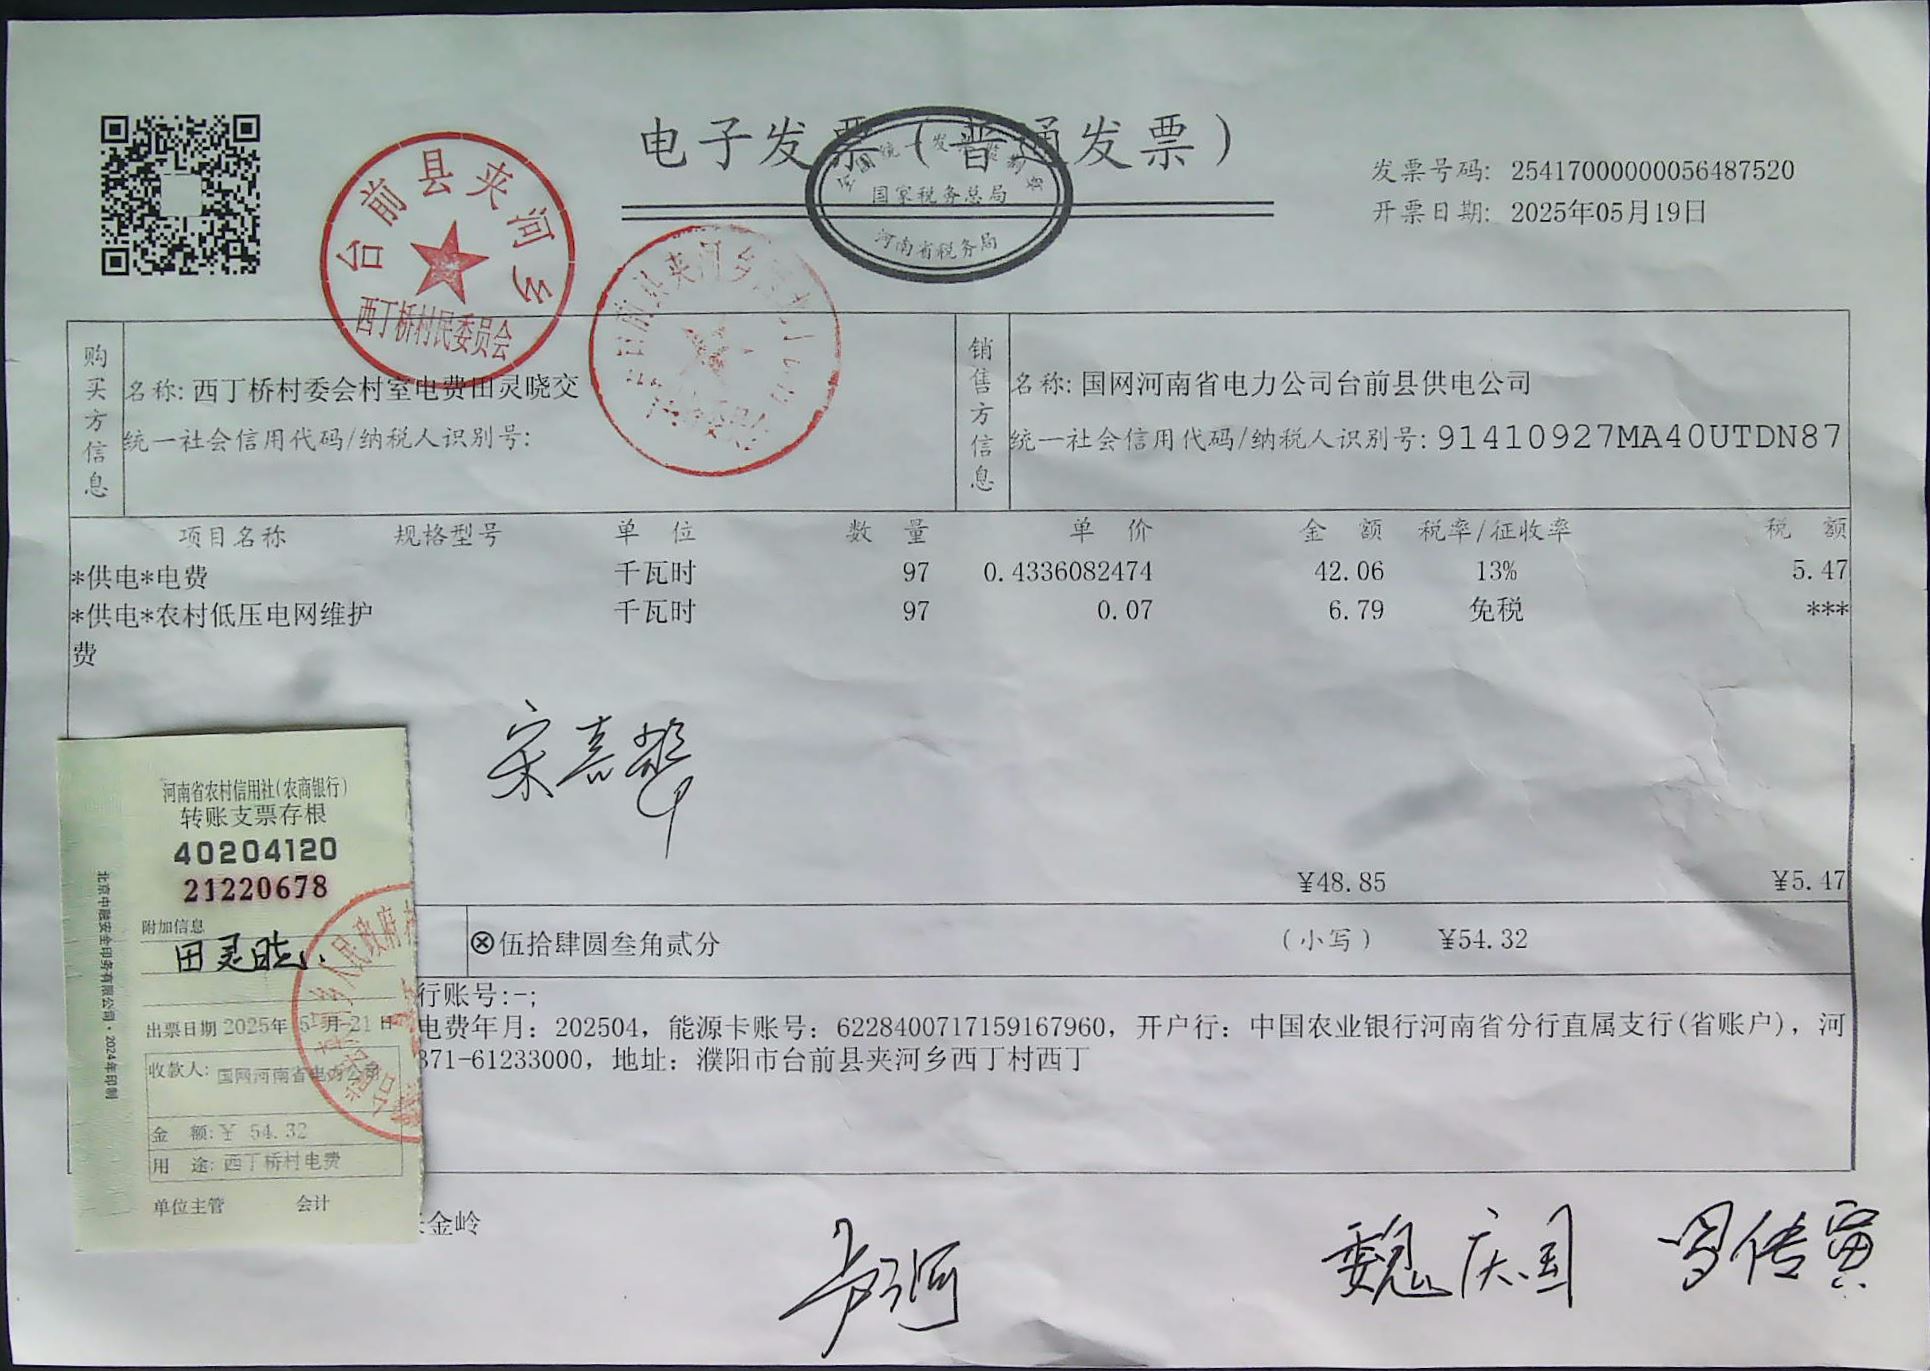 电子发票（普通发票）
全国统一发票监制章
国家税务总局
河南省税务局
发票号码: 25417000000056487520
开票日期: 2025年05月19日
台前县夹河乡
西丁桥村民委员会
购买方信息
名称: 西丁桥村委会村室电费田灵晓交
统一社会信用代码/纳税人识别号:
销售方信息
名称: 国网河南省电力公司台前县供电公司
统一社会信用代码/纳税人识别号: 91410927MA40UTDN87
项目名称 规格型号 单位 数量 单价 金额 税率/征收率 税额
*供电*电费 千瓦时 97 0.4336082474 42.06 13% 5.47
*供电*农村低压电网维护 千瓦时 97 0.07 6.79 免税 ***
费
¥48.85 ¥5.47
⊗伍拾肆圆叁角贰分 （小写） ¥54.32
行账号:-;
电费年月: 202504, 能源卡账号: 6228400717159167960, 开户行: 中国农业银行河南省分行直属支行(省账户), 河
371-61233000, 地址: 濮阳市台前县夹河乡西丁村西丁
河南省农村信用社(农商银行)
转账支票存根
40204120
21220678
附加信息
田灵晓
出票日期 2025年5月21日
收款人: 国网河南省电力公司
金 额: ¥ 54.32
用 途: 西丁桥村电费
单位主管 会计
北京中融安全印务有限公司·2024年印制
金岭
魏庆国
冯传寅